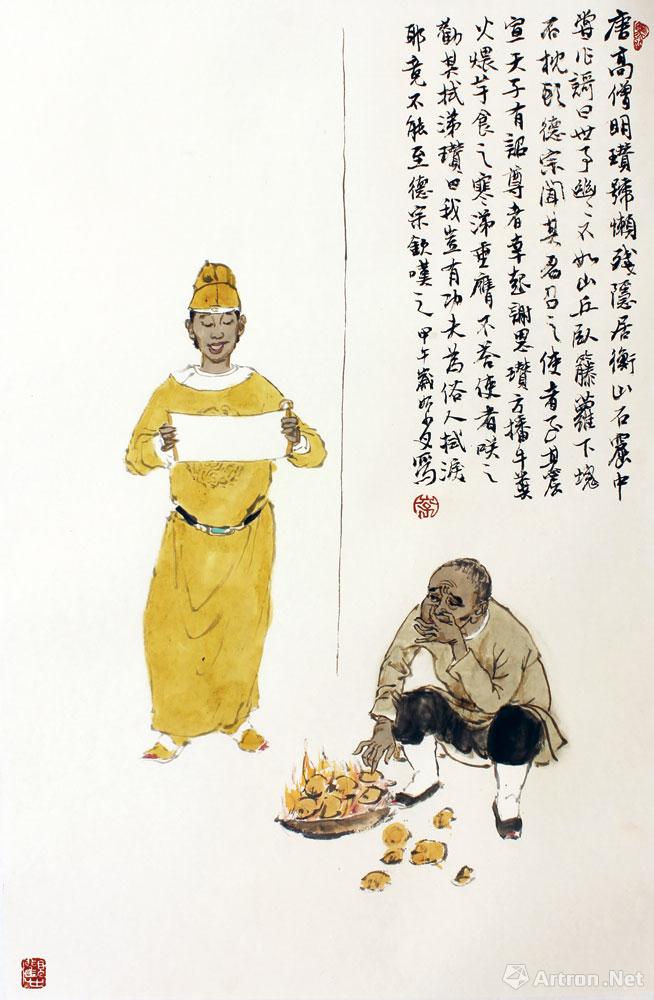 唐高僧明瓒號懶殘隱居衡山石窟中
嘗作謌曰世事悠々不如山丘臥籐蘿下塊
石枕頭德宗聞其名召之使者至其窟
宣天子有詔尊者幸起謝恩瓚方撥牛糞
火煨芋食之寒涕垂膺不荅使者咲之
勸其拭涕瓚曰我豈有功夫為俗人拭淚
耶竟不能至德宗欽嘆之甲午歲
Artron.Net